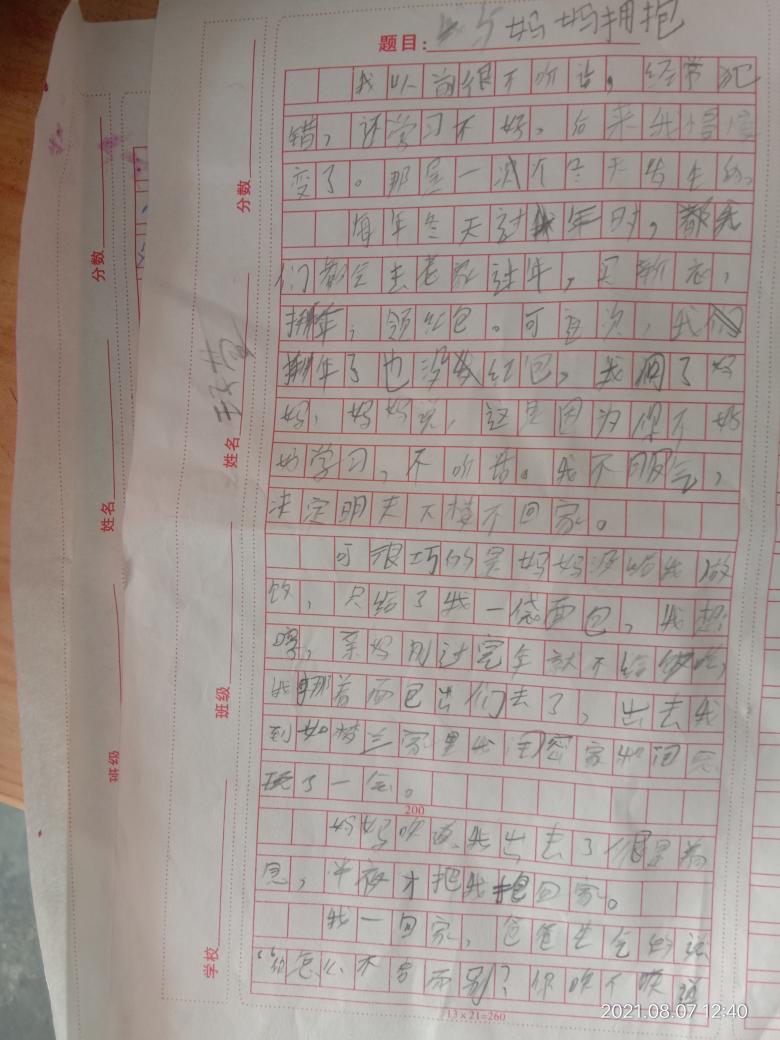 题目：与妈妈拥抱
我以前很不听话，经常犯
错，还学习不好，后来我慢慢
变了。那是一次个冬天发生的。
每年冬天过年时，都我
们都会去老家过年，买新衣，
拜年，领红包。可直次，我们
拜年了也没发红包，我问了妈
妈，妈妈说，这是因为你不好
好学习，不听话。我不服气，
决定明天下楼不回家。
可很巧的是妈妈没给我做
饭，只给了我一袋面包，我想
哼，亲妈刚过完年就不给做吃，
我拿着面包出们去了，出去我
到如楼兰家里我闺密家和闺密
玩了一会。
200
妈妈听直我出去了很是着
急，半夜才把我抱回家。
我一回家，爸爸生气的说
“你怎么不告而别？你昨不昨道
13×21=260
分数
姓名
班级
学校
分数
姓名
班级
2021.08.07 12:40